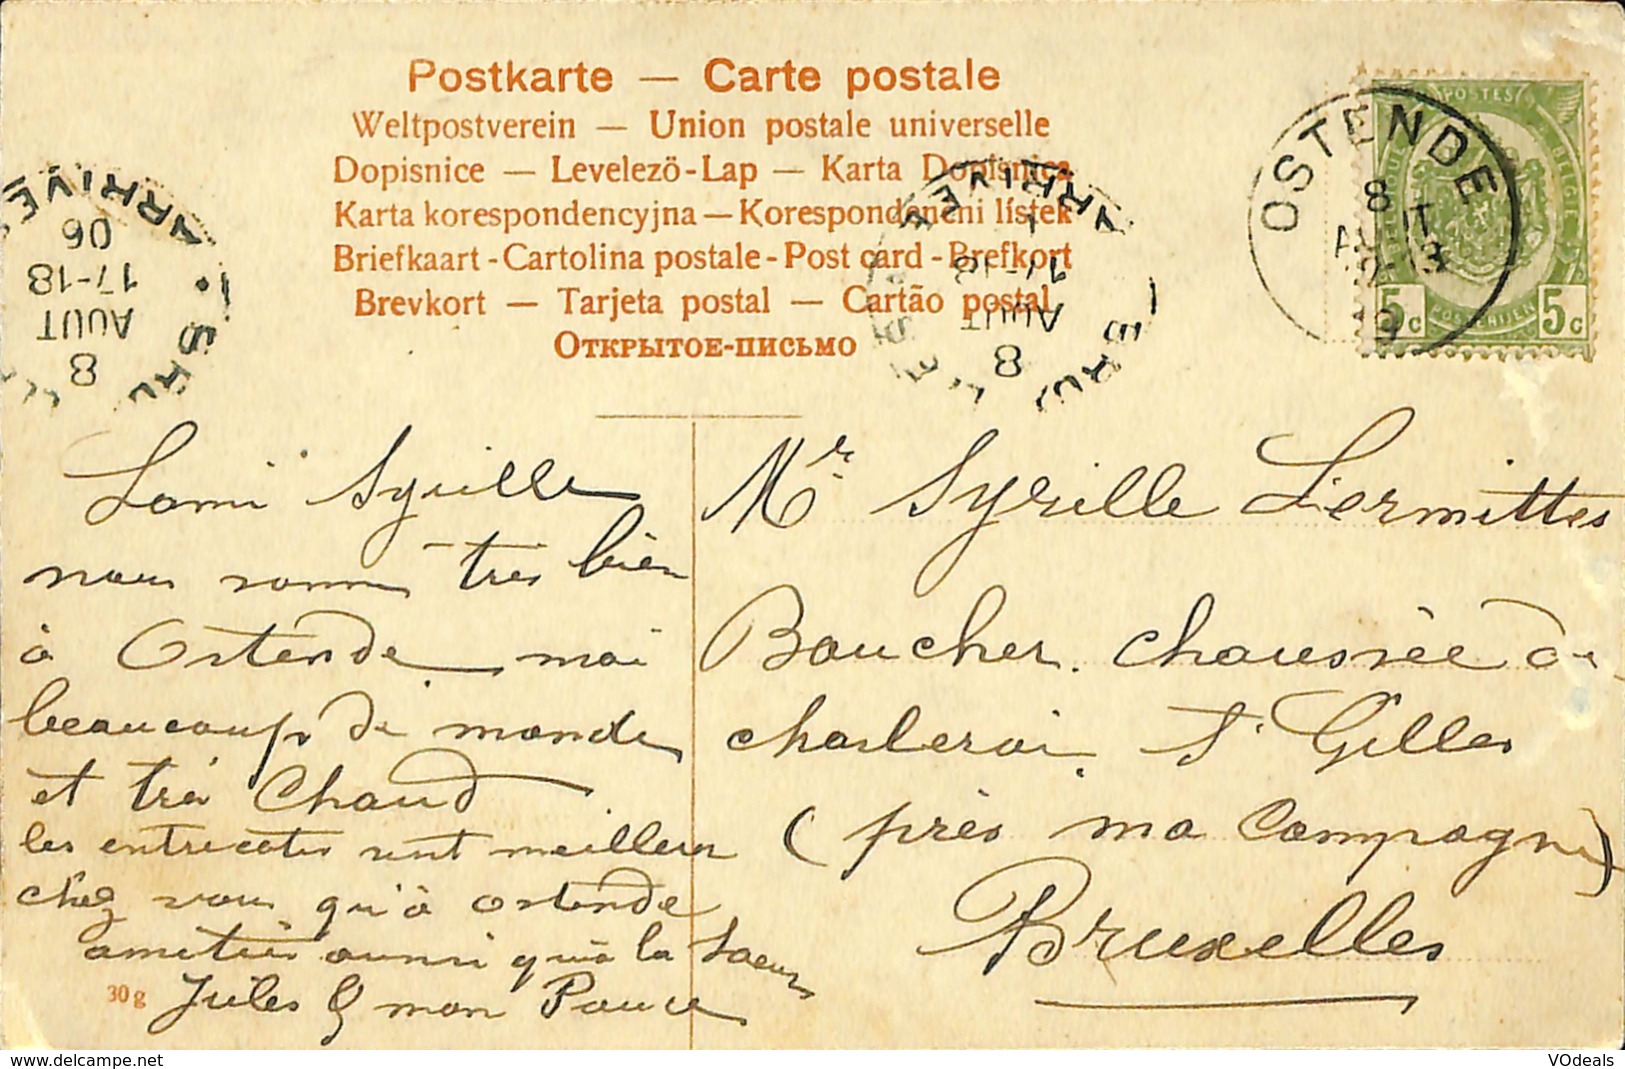 Postkarte — Carte postale
Weltpostverein — Union postale universelle
Dopisnice — Levelezö-Lap — Karta Dopisnica
Karta korespondencyjna — Korespondenční lístek
Briefkaart - Cartolina postale - Post card - Brefkort
Brevkort — Tarjeta postal — Cartão postal
Открытое-письмо
OSTENDE
8
AOUT
POSTES
BELGIE
POSTERIJEN
5c 5c
ARRIVÉE
06
17-18
AOUT
8
ARRIVÉE
17-18
AOUT
8
Lami Syrille
nous somm très bien
à Ostende mai
beaucoup de monde
et très Chaud
les entrecotes sont meilleur
chez vous qu'à ostende
amitiés aussi qu'à la Soeur
Jules & mon Pouce
30 g
Mr Syrille Lermittes
Boucher. chaussèe de
charleroi St Gilles
(près ma Compagne)
Bruxelles
delcampe.net
VOdeals